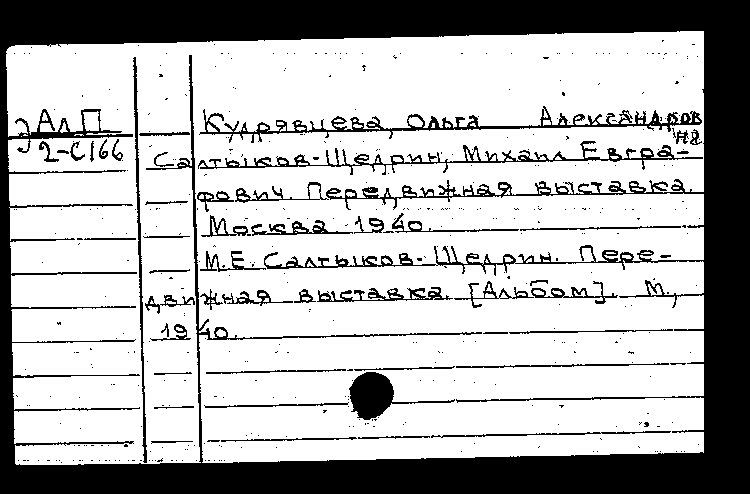 Э Ал П
2-С166
Кудрявцева, Ольга Александров
на
Салтыков-Щедрин, Михаил Евгра-
фович. Передвижная выставка.
Москва 1940.
М.Е. Салтыков-Щедрин. Пере-
движная выставка. [Альбом]. М.,
1940.